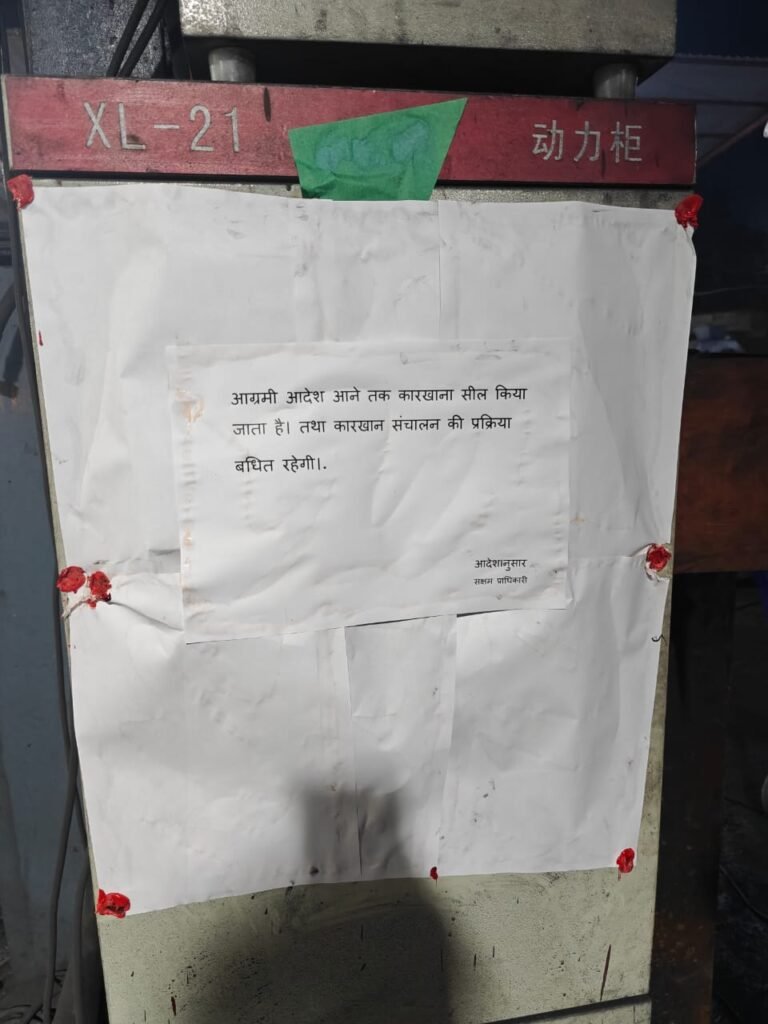 XL-21 动力柜
आग्रमी आदेश आने तक कारखाना सील किया
जाता है। तथा कारखान संचालन की प्रक्रिया
बधित रहेगी।.
आदेशानुसार
सक्षम प्राधिकारी